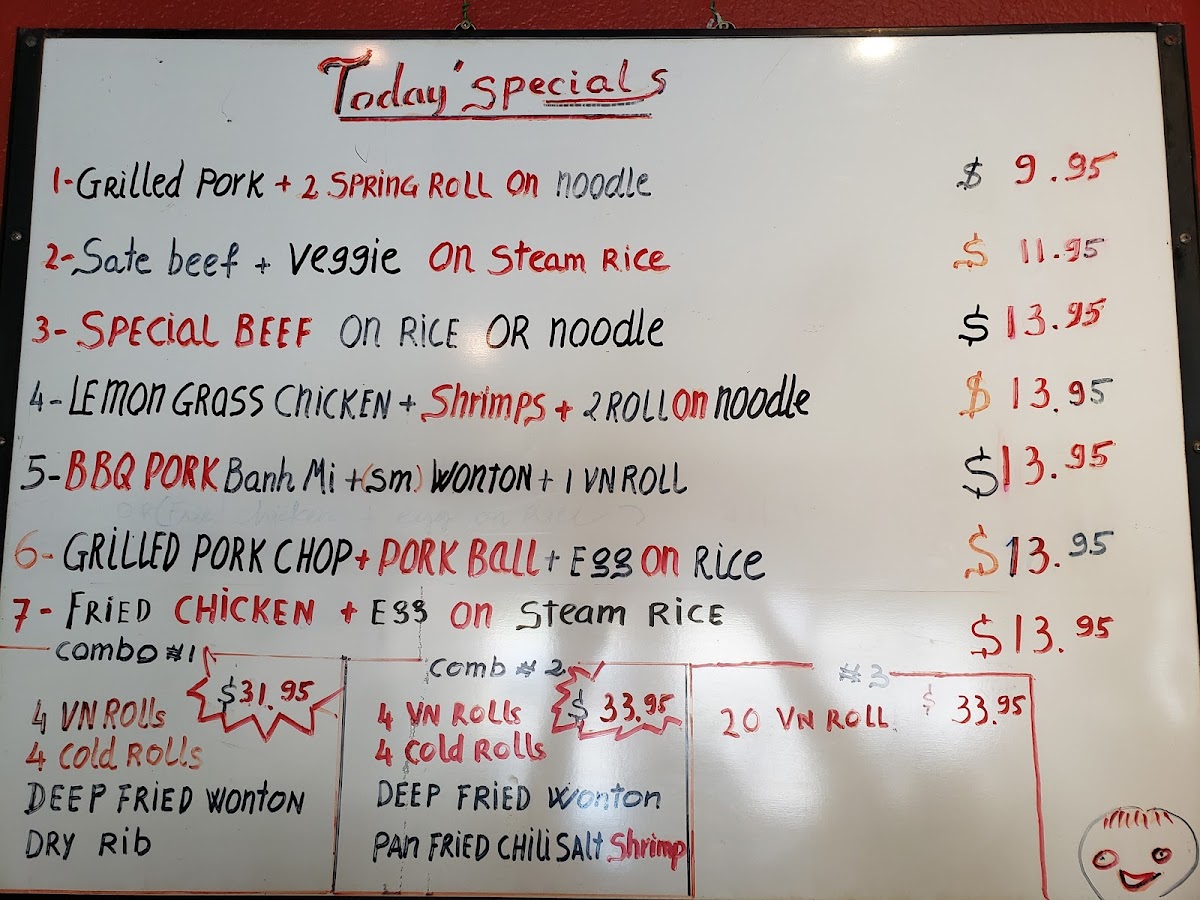 Today' specials
1-Grilled Pork + 2 SPRING ROLL on noodle $ 9.95
2-Sate beef + veggie on Steam Rice $ 11.95
3- SPECIAL BEEF on RICE OR noodle $ 13.95
4-LEMON GRASS CHICKEN + Shrimps + 2 ROLL on noodle $ 13.95
5-BBQ PORK Banh Mi +(sm) WONTON + 1 VN ROLL $ 13.95
6- GRILLED PORK CHOP + PORK Ball + Egg on Rice $ 13.95
7- FRIED CHICKEN + Egg on Steam RICE $ 13.95
combo #1
$31.95
4 VN ROLLs
4 Cold ROLLs
DEEP FRIED WONTON
DRY Rib
comb # 2
$ 33.95
4 VN ROLLs
4 Cold ROLLs
DEEP FRIED Wonton
PAN FRIED CHILI SALT Shrimp
#3
20 VN ROLL $ 33.95